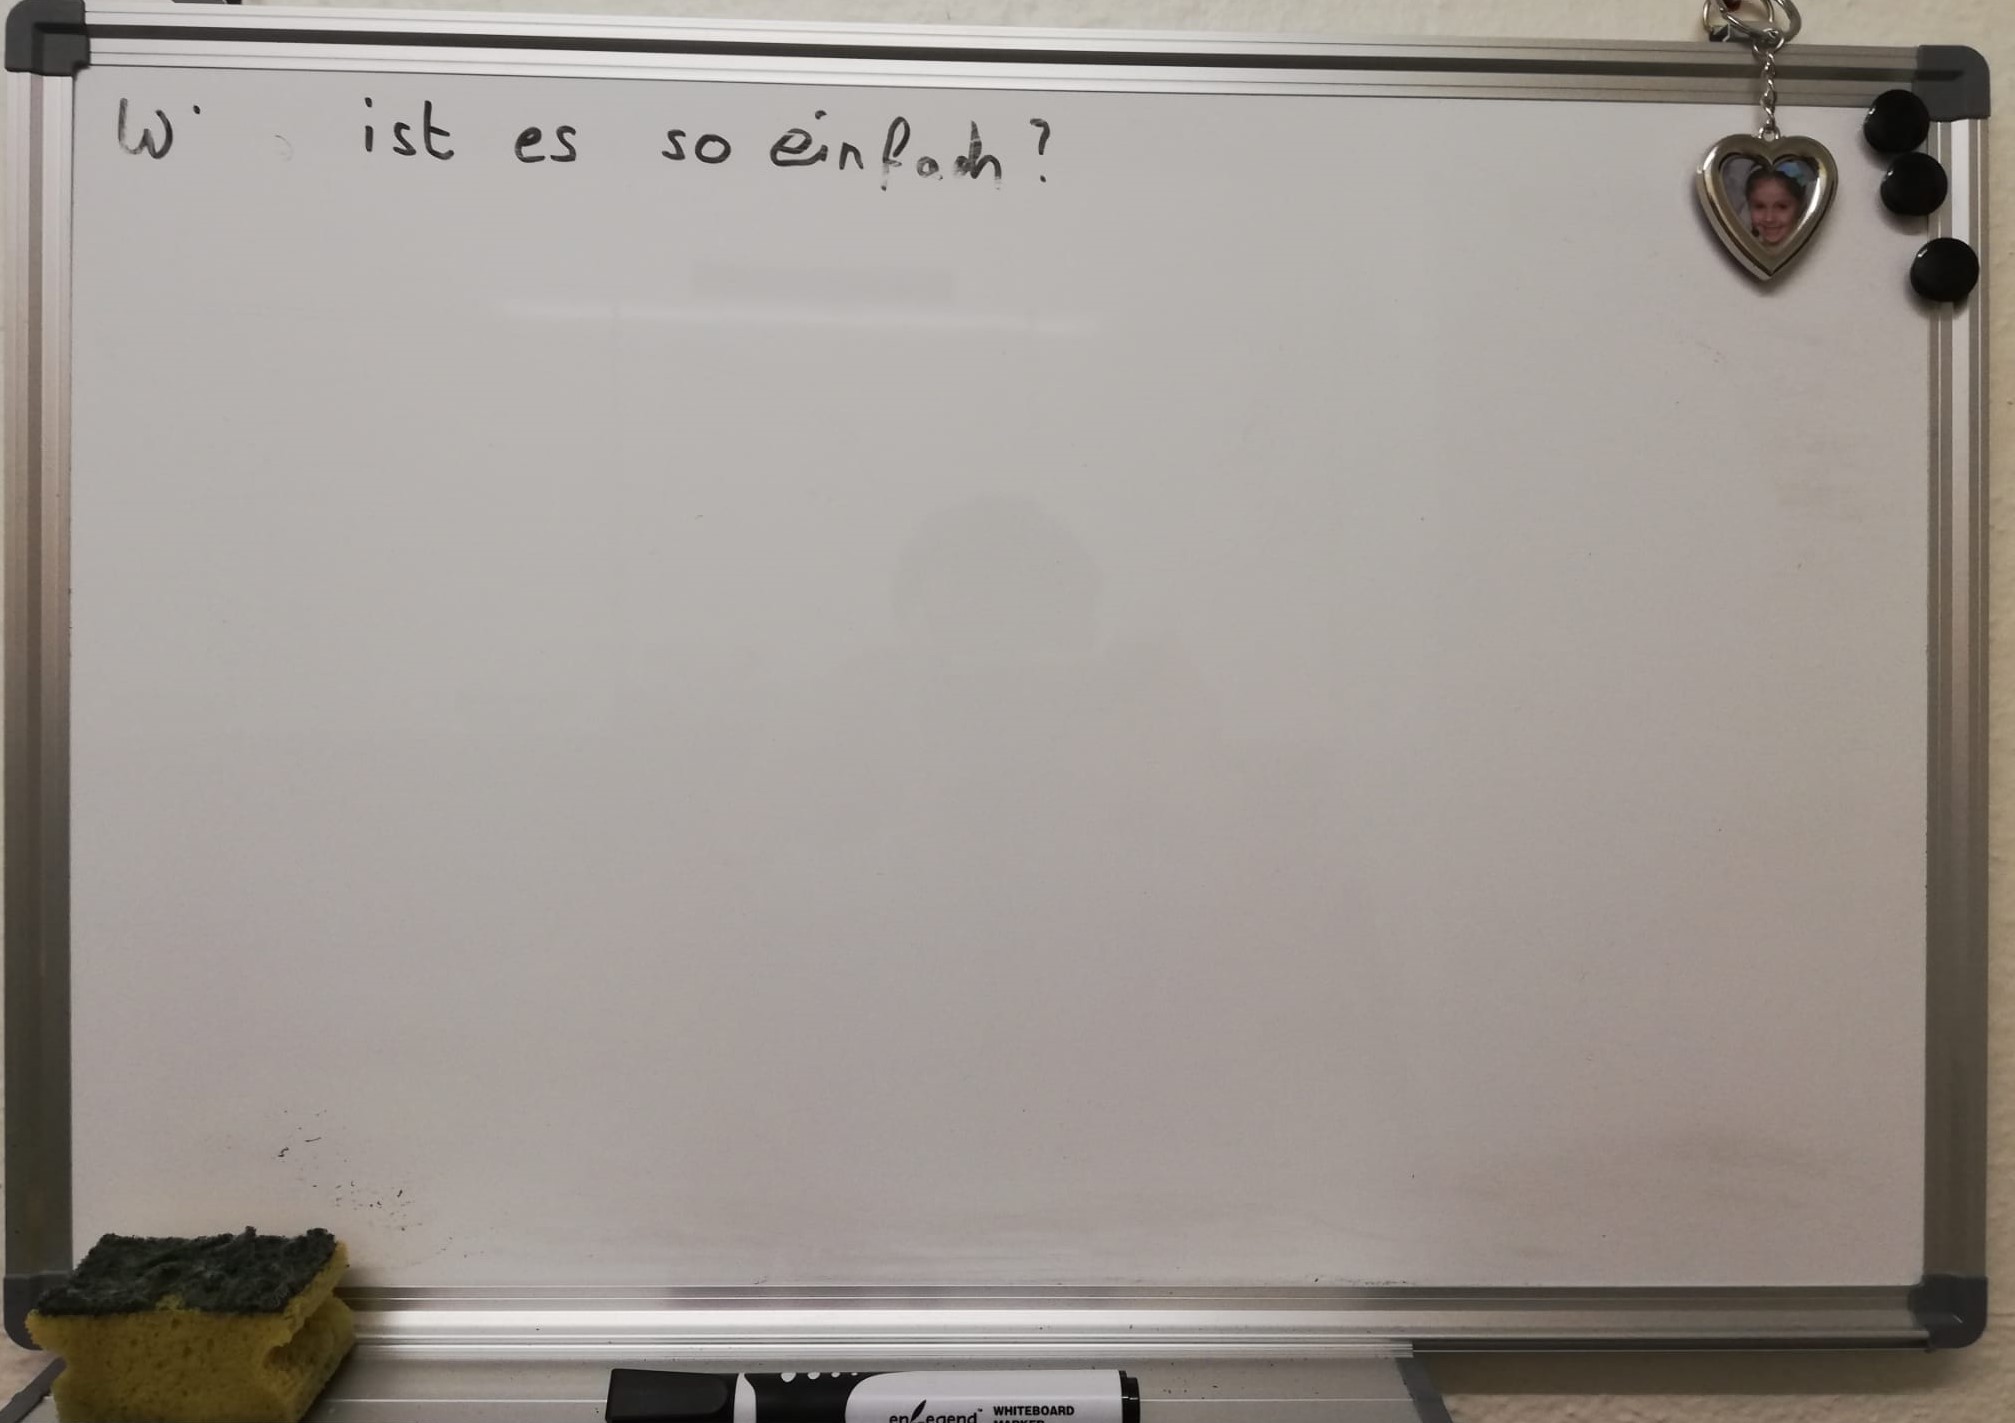 ist es so einfach?
enLegend™ WHITEBOARD
MARKER